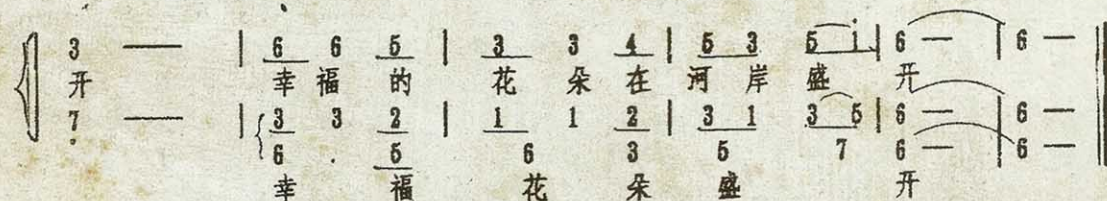 3 — | 6 6 5 | 3 3 4 | 5 3 5 i | 6 — | 6 — ‖
开 幸 福 的 花 朵 在 河 岸 盛 开
7 — | 3 3 2 | 1 1 2 | 3 1 3 5 | 6 — | 6 — ‖
6 . 5 6 3 5 7 6 — 6 —
幸 福 花 朵 盛 开